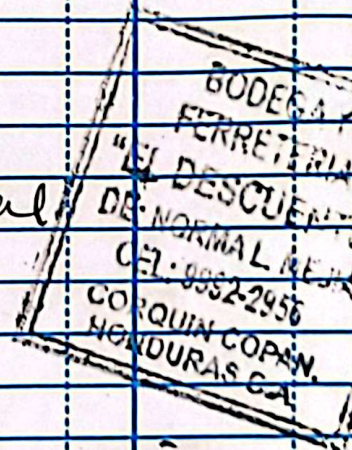 BODEGA Y
FERRETERIA
"EL DESCUENT
DE: NORMAL MEJI
CEL: 9952-2956
CORQUIN COPAN.
HONDURAS C.A